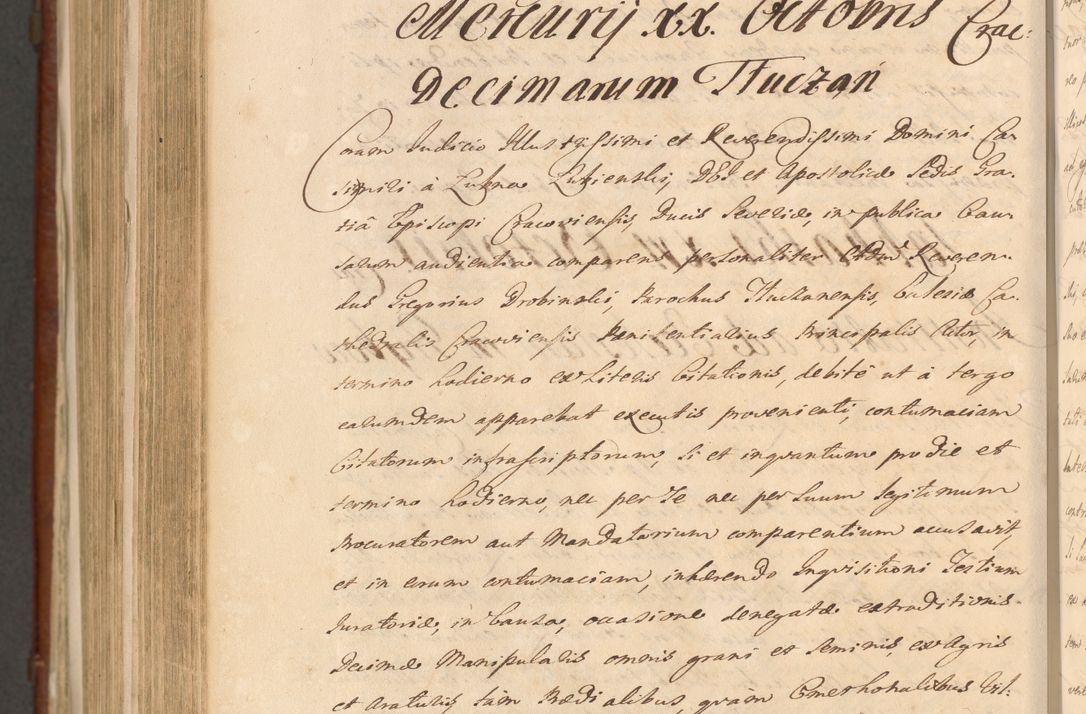 Mercurij xx. Octobris Crac:
Decimarum Tłuczań
Coram Judicio Illustrissimi et Reverendissimi Domini Ca-
simiri à Łubna Łubienski, DEI et Apostolicæ Sedis Gra-
tiâ Episcopi Cracoviensis, Ducis Severiæ, in publica Cau-
sarum audientia comparens personaliter Reveren-
dus Gregorius Drobinski, Parochus Tłuczanensis, Ecclesiæ Ca-
thedralis Cracoviensis Penitentiarius Principalis Actor, in
termino hodierno ex Literis Citationis, debitè ut à tergo
earumdem apparebat executis provenienti, contumaciam
Citatorum infrascriptorum, si et inquantum pro die et
termino hodierno, nec per se nec per suum legitimum
Procuratorem aut Mandatarium comparentium accusavit,
et in eorum contumaciam, inhærendo Inquisitioni Testium
Juratoriæ, in Causa, occasione denegatæ extraditionis
Decimæ Manipularis omnis grani et seminis ex Agris
et araturis, tàm Prædialibus, quàm Cmethonalibus Vil-